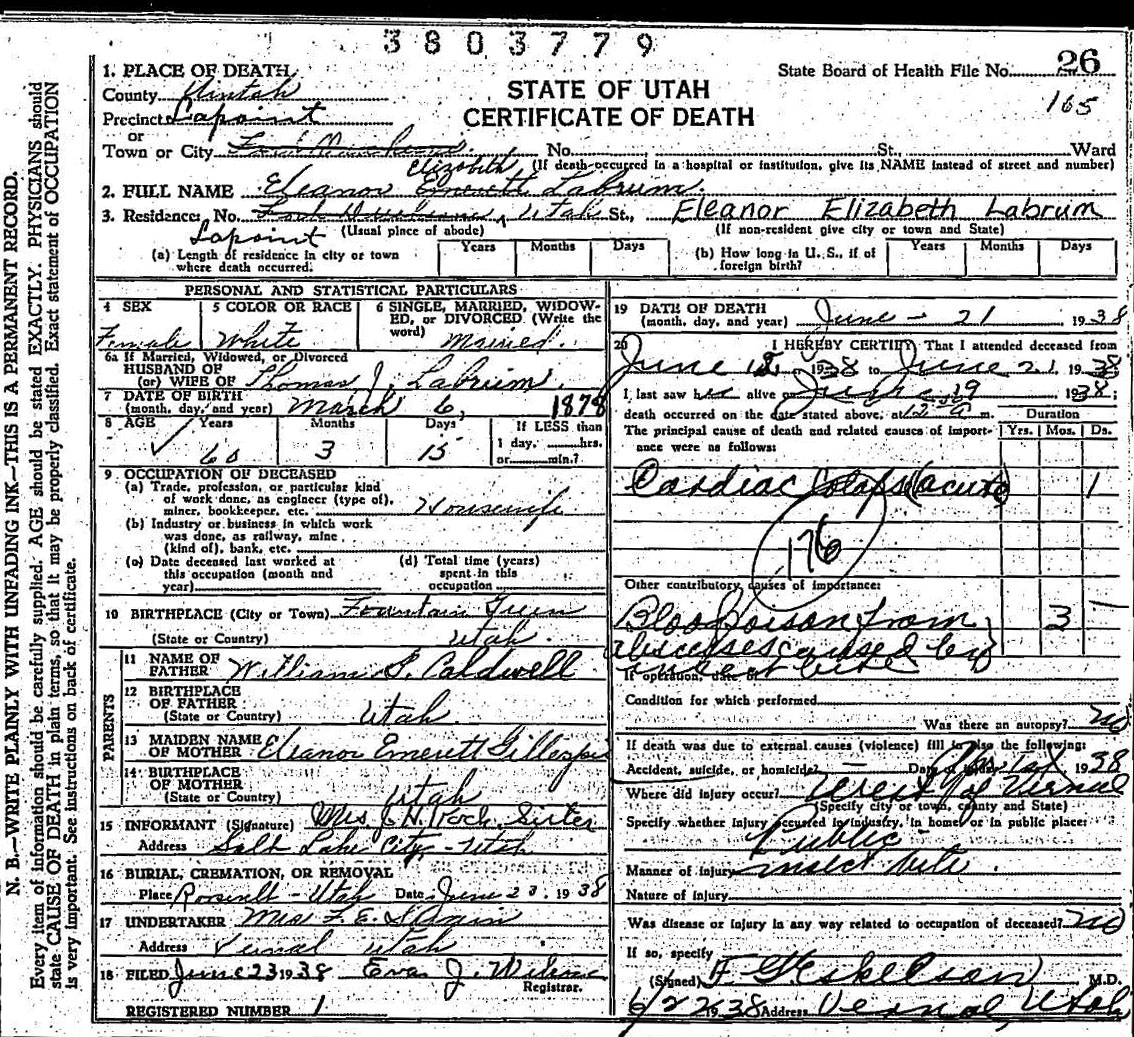 3803779
State Board of Health File No. 26
165
STATE OF UTAH
CERTIFICATE OF DEATH
1. PLACE OF DEATH
County Uintah
Precinct Lapoint
or
Town or City Fort Duchesne No. St., Ward
(If death occurred in a hospital or institution, give its NAME instead of street and number)
Elizabeth
2. FULL NAME Eleanor Emerett Labrum.
3. Residence, No. Fort Duchesne, Utah St., Eleanor Elizabeth Labrum
Lapoint (Usual place of abode) (If non-resident give city or town and State)
(a) Length of residence in city or town where death occurred. Years Months Days
(b) How long in U. S., if of foreign birth? Years Months Days
PERSONAL AND STATISTICAL PARTICULARS
4 SEX Female
5 COLOR OR RACE White
6 SINGLE, MARRIED, WIDOWED, or DIVORCED. (Write the word) Married.
6a If Married, Widowed, or Divorced
HUSBAND OF
(or) WIFE OF Thomas J. Labrum.
7 DATE OF BIRTH
(month, day, and year) March 6, 1878
8 AGE Years 60 Months 3 Days 15
If LESS than 1 day, hrs. or min.?
9 OCCUPATION OF DECEASED
(a) Trade, profession, or particular kind of work done, as engineer (type of), miner, bookkeeper, etc. Housewife
(b) Industry or business in which work was done, as railway, mine (kind of), bank, etc.
(c) Date deceased last worked at this occupation (month and year)
(d) Total time (years) spent in this occupation
10 BIRTHPLACE (City or Town) Fountain Green
(State or Country) Utah.
PARENTS
11 NAME OF FATHER William S. Caldwell
12 BIRTHPLACE OF FATHER
(State or Country) Utah.
13 MAIDEN NAME OF MOTHER Eleanor Emerett Gillespie
14 BIRTHPLACE OF MOTHER
(State or Country) Utah
15 INFORMANT (Signature) Mrs. Sister
Address Salt Lake City, - Utah
16 BURIAL, CREMATION, OR REMOVAL
Place Roosevelt - Utah Date June 23. 1938
17 UNDERTAKER Mrs F. E.
Address Vernal Utah
18 FILED June 23 1938 Eva J.
Registrar.
REGISTERED NUMBER 1
19 DATE OF DEATH
(month, day, and year) June - 21 1938
20 I HEREBY CERTIFY That I attended deceased from
June 1938 to June 21, 1938
I last saw her alive on June 19 1938;
death occurred on the date stated above, at 12 a m.
Duration
The principal cause of death and related causes of importance were as follows: Yrs. Mos. Ds.
Cardiac (acute) 1
176
Other contributory causes of importance:
Blood Poison from 3 -
abscesses caused by
insect bite
If operation, date of
Condition for which performed
Was there an autopsy? no
If death was due to external causes (violence) fill in also the following:
Accident, suicide, or homicide? - Date of injury 1938
Where did injury occur? West of Vernal
(Specify city or town, county and State)
Specify whether injury occurred in industry, in home, or in public place:
Public -
Manner of injury insect bite.
Nature of injury
Was disease or injury in any way related to occupation of deceased? no
If so, specify
(Signed) F. G. Eskelson M.D.
6/22 1938 Address Vernal, Utah
N. B.—WRITE PLAINLY WITH UNFADING INK—THIS IS A PERMANENT RECORD.
Every item of information should be carefully supplied. AGE should be stated EXACTLY. PHYSICIANS should
state CAUSE OF DEATH in plain terms, so that it may be properly classified. Exact statement of OCCUPATION
is very important. See instructions on back of certificate.